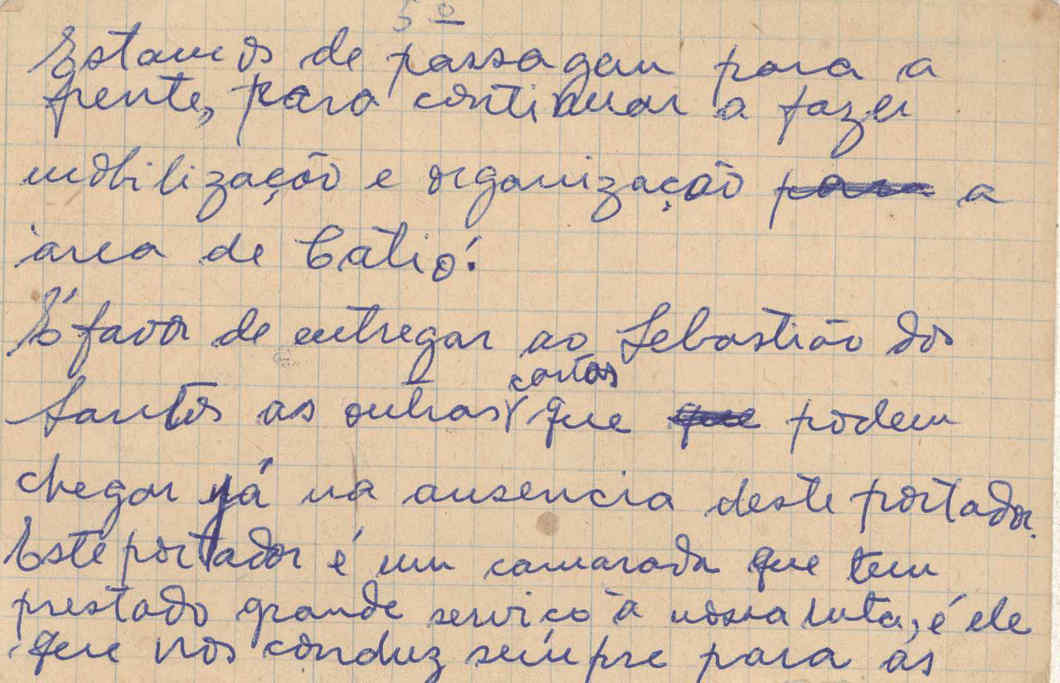 5º
Estamos de passagem para a
frente, para continuar a fazer
mobilização e organização para a
área de Catió.
É favor de entregar ao Sebastião dos
cartas
Santos as outras que que podem
chegar já na ausencia deste portador.
Este portador é um camarada que tem
prestado grande serviço à nossa luta, é ele
que nos conduz sempre para as